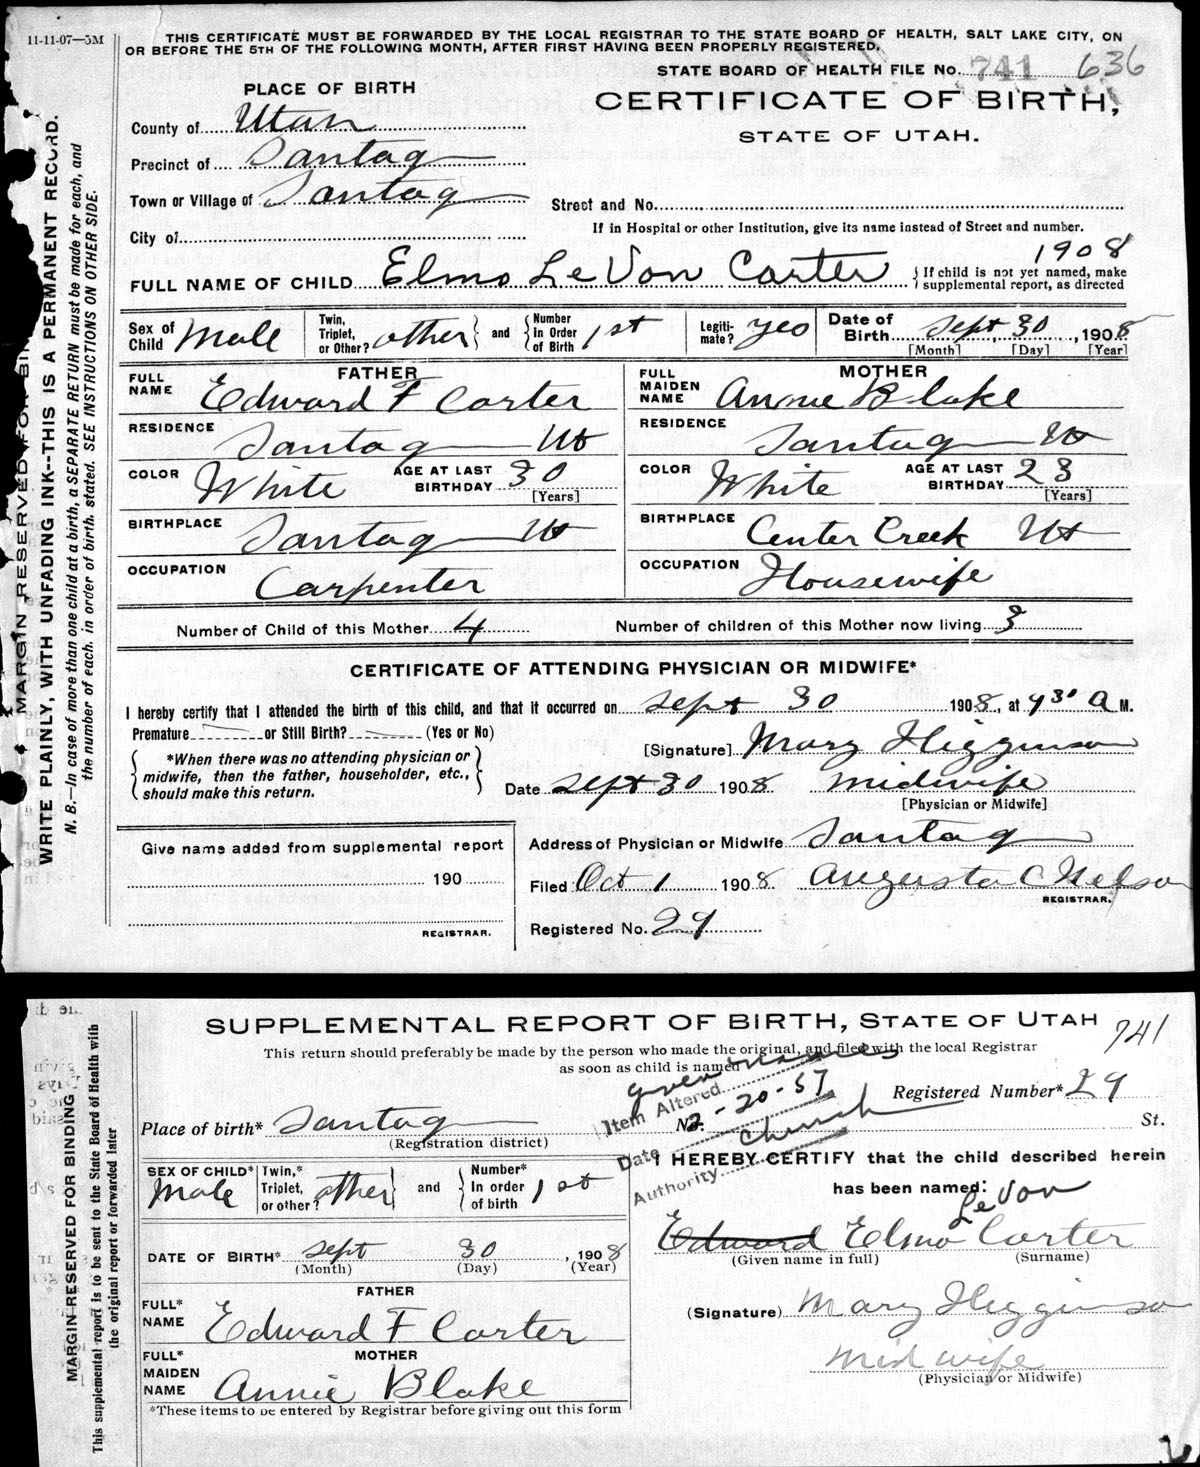 11-11-07—5M
THIS CERTIFICATE MUST BE FORWARDED BY THE LOCAL REGISTRAR TO THE STATE BOARD OF HEALTH, SALT LAKE CITY, ON
OR BEFORE THE 5TH OF THE FOLLOWING MONTH, AFTER FIRST HAVING BEEN PROPERLY REGISTERED.
STATE BOARD OF HEALTH FILE No. 741 636
PLACE OF BIRTH
CERTIFICATE OF BIRTH,
STATE OF UTAH.
County of Utah
Precinct of Santaq
Town or Village of Santaq
Street and No.
City of
If in Hospital or other Institution, give its name instead of Street and number.
1908
FULL NAME OF CHILD Elmo LeVon Carter
{If child is not yet named, make
supplemental report, as directed
Sex of Child Male
Twin, Triplet, or Other? other
and
Number In Order of Birth 1st
Legiti- mate? yes
Date of Birth Sept 30, 1908
[Month] [Day] [Year]
FATHER
FULL NAME Edward F Carter
RESIDENCE Santaq Ut
COLOR White
AGE AT LAST BIRTHDAY 30
[Years]
BIRTHPLACE Santaq Ut
OCCUPATION Carpenter
MOTHER
FULL MAIDEN NAME Annie Blake
RESIDENCE Santaq Ut
COLOR White
AGE AT LAST BIRTHDAY 23
[Years]
BIRTHPLACE Center Creek Ut
OCCUPATION Housewife
Number of Child of this Mother 4
Number of children of this Mother now living 3
CERTIFICATE OF ATTENDING PHYSICIAN OR MIDWIFE*
I hereby certify that I attended the birth of this child, and that it occurred on Sept 30 1908, at 9 30 A M.
Premature or Still Birth? (Yes or No)
*When there was no attending physician or
midwife, then the father, householder, etc.,
should make this return.
[Signature] Mary Higginson
Date Sept 30 1908 Midwife
[Physician or Midwife]
Give name added from supplemental report
190
REGISTRAR.
Address of Physician or Midwife Santaq
Filed Oct 1 1908 Augusta C Nelson
REGISTRAR.
Registered No. 29
WRITE PLAINLY, WITH UNFADING INK--THIS IS A PERMANENT RECORD.
N. B.—In case of more than one child at a birth, a SEPARATE RETURN must be made for each, and
the number of each, in order of birth, stated. SEE INSTRUCTIONS ON OTHER SIDE.
SUPPLEMENTAL REPORT OF BIRTH, STATE OF UTAH
741
This return should preferably be made by the person who made the original, and filed with the local Registrar
as soon as child is named
Item Altered given names
Date 2-20-57
Authority Church
Registered Number* 29
Place of birth* Santaq
No.
St.
(Registration district)
SEX OF CHILD* Male
Twin,* Triplet, or other? other
and
Number* In order of birth 1st
DATE OF BIRTH* Sept 30, 1908
(Month) (Day) (Year)
FATHER
FULL* NAME Edward F Carter
MOTHER
FULL* MAIDEN NAME Annie Blake
*These items to be entered by Registrar before giving out this form
I HEREBY CERTIFY that the child described herein
has been named:
LeVon
Edward Elmo Carter
(Given name in full) (Surname)
(Signature) Mary Higginso
Midwife
(Physician or Midwife)
MARGIN RESERVED FOR BINDING
This supplemental report is to be sent to the State Board of Health with
the original report or forwarded later